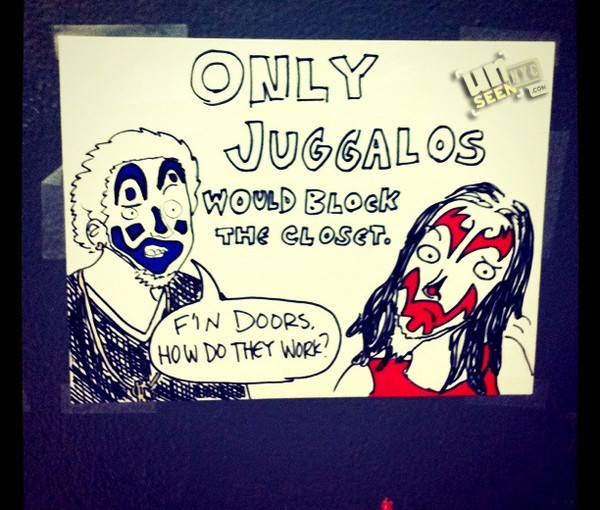 ONLY
JUGGALOS
WOULD BLOCK
THE CLOSET.
F'N DOORS,
HOW DO THEY WORK?
UN
SEEN NYC
.COM